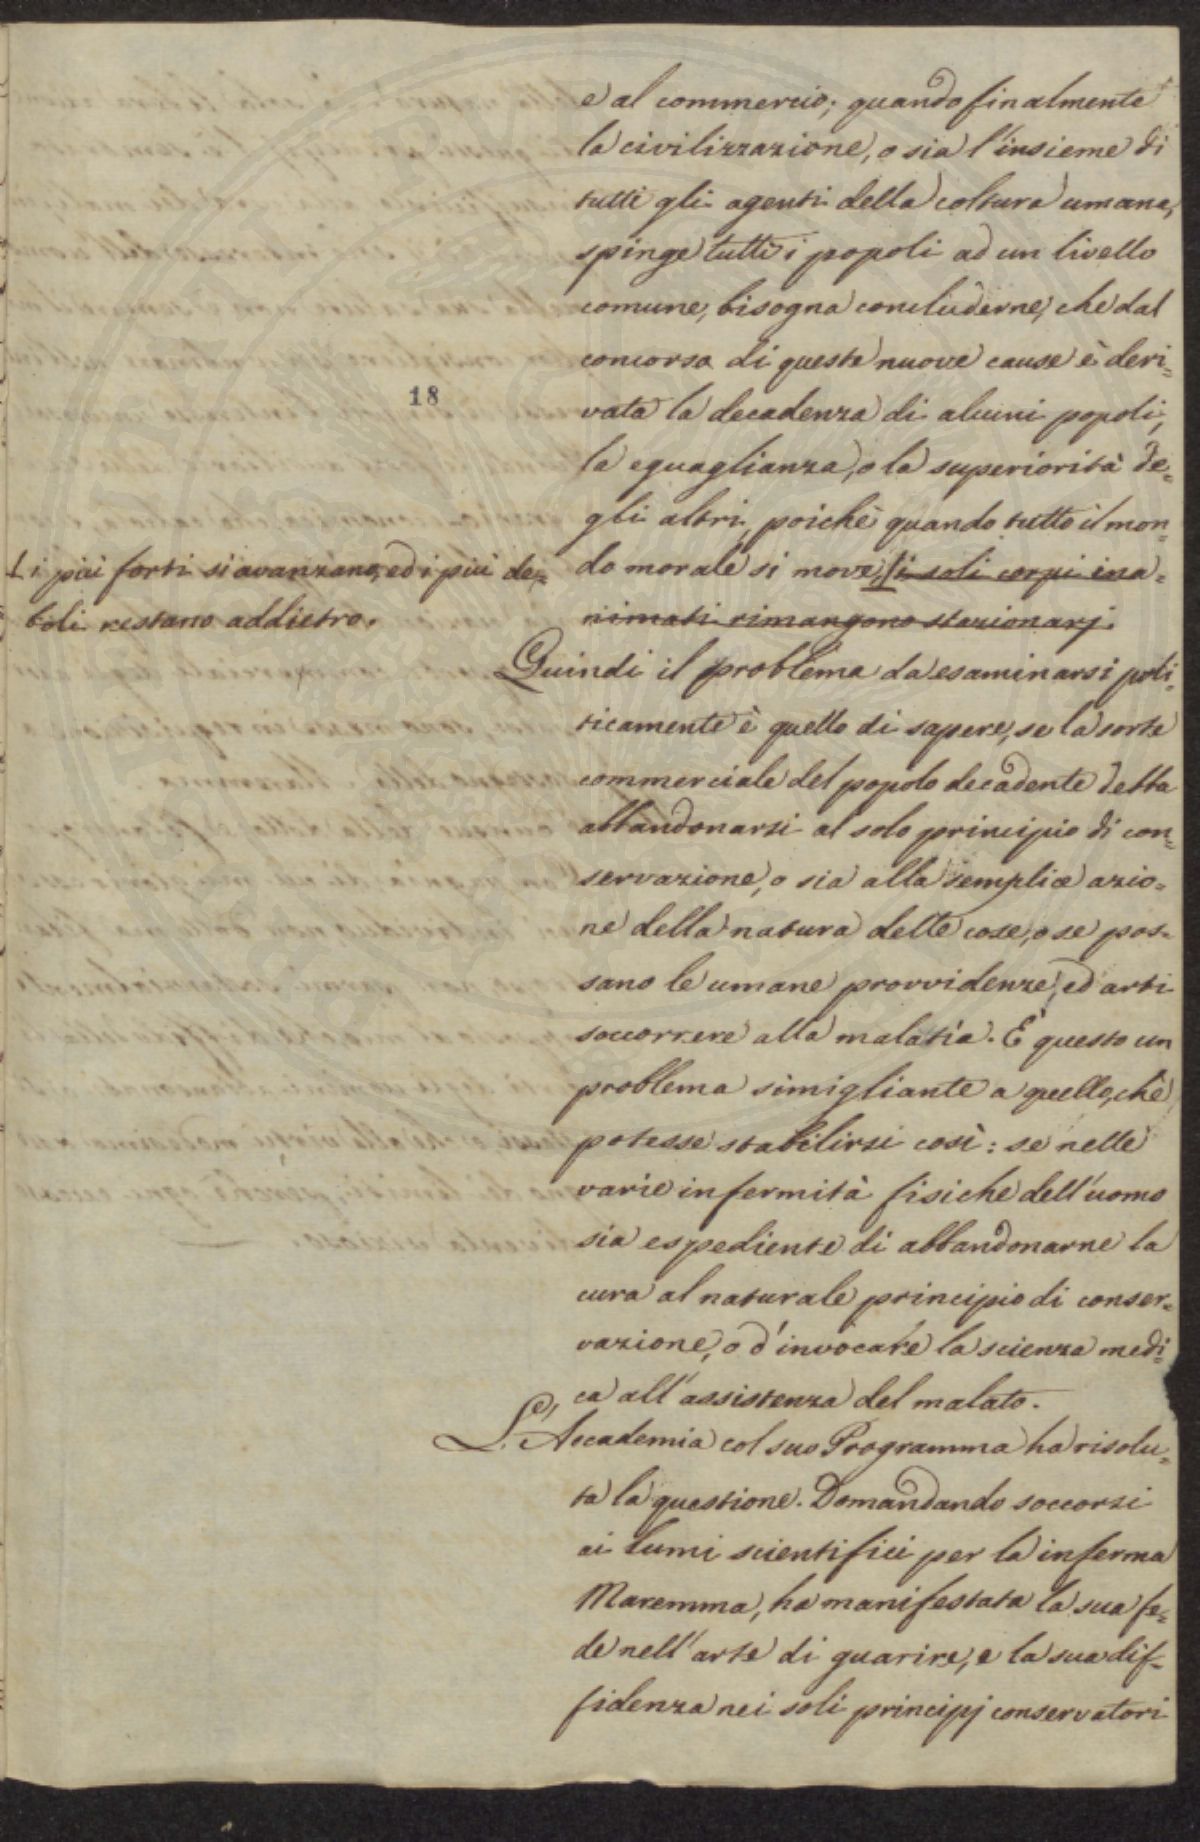 e al commercio; quando finalmente
la civilizzazione, o sia l'insieme di
tutti gli agenti della coltura umana,
spinge tutti i popoli ad un livello
comune, bisogna concluderne, che dal
concorso di queste nuove cause è deri=
vata la decadenza di alcuni popoli,
la eguaglianza, o la superiorità de=
gli altri, poichè quando tutto il mon=
do morale si move, i soli corpi ina=
nimati rimangono stazionarj.
18
i più forti si avanzano, ed i più de=
boli restano addietro.
Quindi il problema da esaminarsi poli=
ticamente è quello di sapere, se la sorte
commerciale del popolo decadente debba
abbandonarsi al solo principio di con=
servazione, o sia alla semplice azio=
ne della natura delle cose, o se pos=
sano le umane provvidenze, ed arti
soccorrere alla malatìa. È questo un
problema simigliante a quello, che
potesse stabilirsi così: se nelle
varie infermità fisiche dell'uomo
sia espediente di abbandonarne la
cura al naturale principio di conser=
vazione, o d'invocare la scienza medi=
ca all'assistenza del malato.
L'Accademia col suo Programma ha risolu=
ta la questione. Domandando soccorsi
ai lumi scientifici per la inferma
Maremma, ha manifestata la sua fe=
de nell'arte di guarire, e la sua dif=
fidenza nei soli principj conservatori